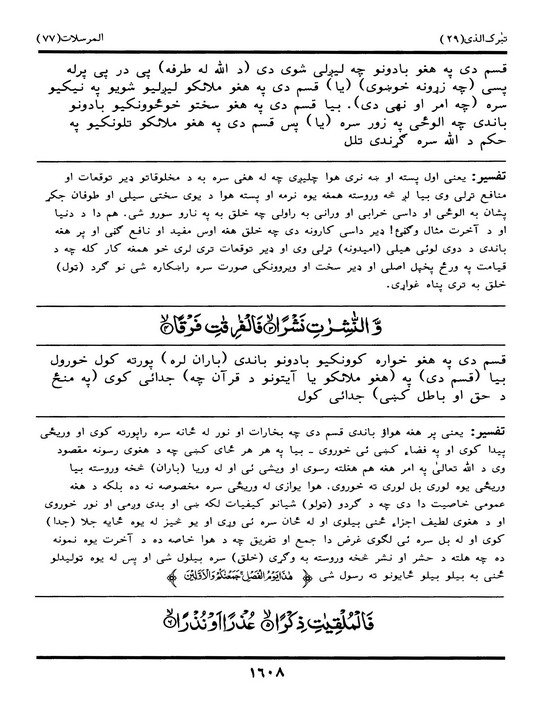 تبٰرک الذی (۲۹) المرسلات (۷۷)
قسم دی په هغو بادونو چه لیږلی شوی دی (د الله له طرفه) پی در پی پرله
پسی (چه زړونه خوښوی) (یا) قسم دی په هغو ملائکو لیږلیو شویو په نیکیو
سره (چه امر او نهی دی)، بیا قسم دی په هغو سختو خوځوونکیو بادونو
باندی چه الوځی په زور سره (یا) پس قسم دی په هغو ملائکو تلونکیو په
حکم د الله سره ګړندی تلل
تفسیر: یعنی اول پسته او ښه نری هوا چلیږی چه له هغی سره به د مخلوقاتو ډیر توقعات او
منافع تړلی وی بیا لږ څه وروسته همغه یوه نرمه او پسته هوا د یوی سختی سیلی او طوفان جکړ
پشان به الوځی او داسی خرابی او ورانی به راولی چه خلق به په نارو سورو شی. هم دا د دنیا
او د آخرت مثال وګڼئ! ډیر داسی کارونه دی چه خلق هغه اوس مفید او نافع ګڼی او پر هغه
باندی د دوی لوئی هیلی (امیدونه) تړلی وی او ډیر توقعات تری لری خو همغه کار کله چه د
قیامت په ورځ پخپل اصلی او ډیر سخت او ویروونکی صورت سره راښکاره شی نو ګرد (ټول)
خلق به تری پناه غواړی.
وَّالنّٰشِرٰتِ نَشْرًا ۝۳ فَالْفٰرِقٰتِ فَرْقًا ۝۴
قسم دی په هغو خواره کوونکیو بادونو باندی (باران لره) پورته کول خورول
بیا (قسم دی) په (هغو ملائکو یا آیتونو د قرآن چه) جدائی کوی (په منځ
د حق او باطل کښی) جدائی کول
تفسیر: یعنی پر هغه هواؤ باندی قسم دی چه بخارات او نور له ځانه سره راپورته کوی او وریځی
پیدا کوی او په فضاء کښی ئی خوروی ـ بیا په هر هر ځای کښی چه د هغوی رسونه مقصود
وی د الله تعالیٰ په امر هغه هم هغلته رسوی او ویشی ئی او له وریا (باران) څخه وروسته بیا
وریځی یوه لوری بل لوری ته خوروی. هوا یوازی له وریځی سره مخصوصه نه ده بلکه د هغه
عمومی خاصیت دا دی چه د ګردو (ټولو) شیانو کیفیات لکه ښی او بدی وږمی او نور خوروی
او د هغوی لطیف اجزاء ځنی بیلوی او له ځان سره ئی وړی او یو څیز له یوه ځایه جلا (جدا)
کوی او له بل سره ئی لګوی غرض دا جمع او تفریق چه د هوا خاصه ده د آخرت یوه نمونه
ده چه هلته د حشر او نشر څخه وروسته به وګړی (خلق) سره بیلول شی او پس له یوه ټولیدلو
ځنی به بیلو بیلو ځایونو ته رسول شی ﴿ هٰذَا يَوْمُ الْفَصْلِ جَمَعْنٰكُمْ وَالْاَوَّلِيْنَ ﴾
فَالْمُلْقِيٰتِ ذِكْرًا ۝۵ عُذْرًا اَوْ نُذْرًا ۝۶
۱٦۰۸